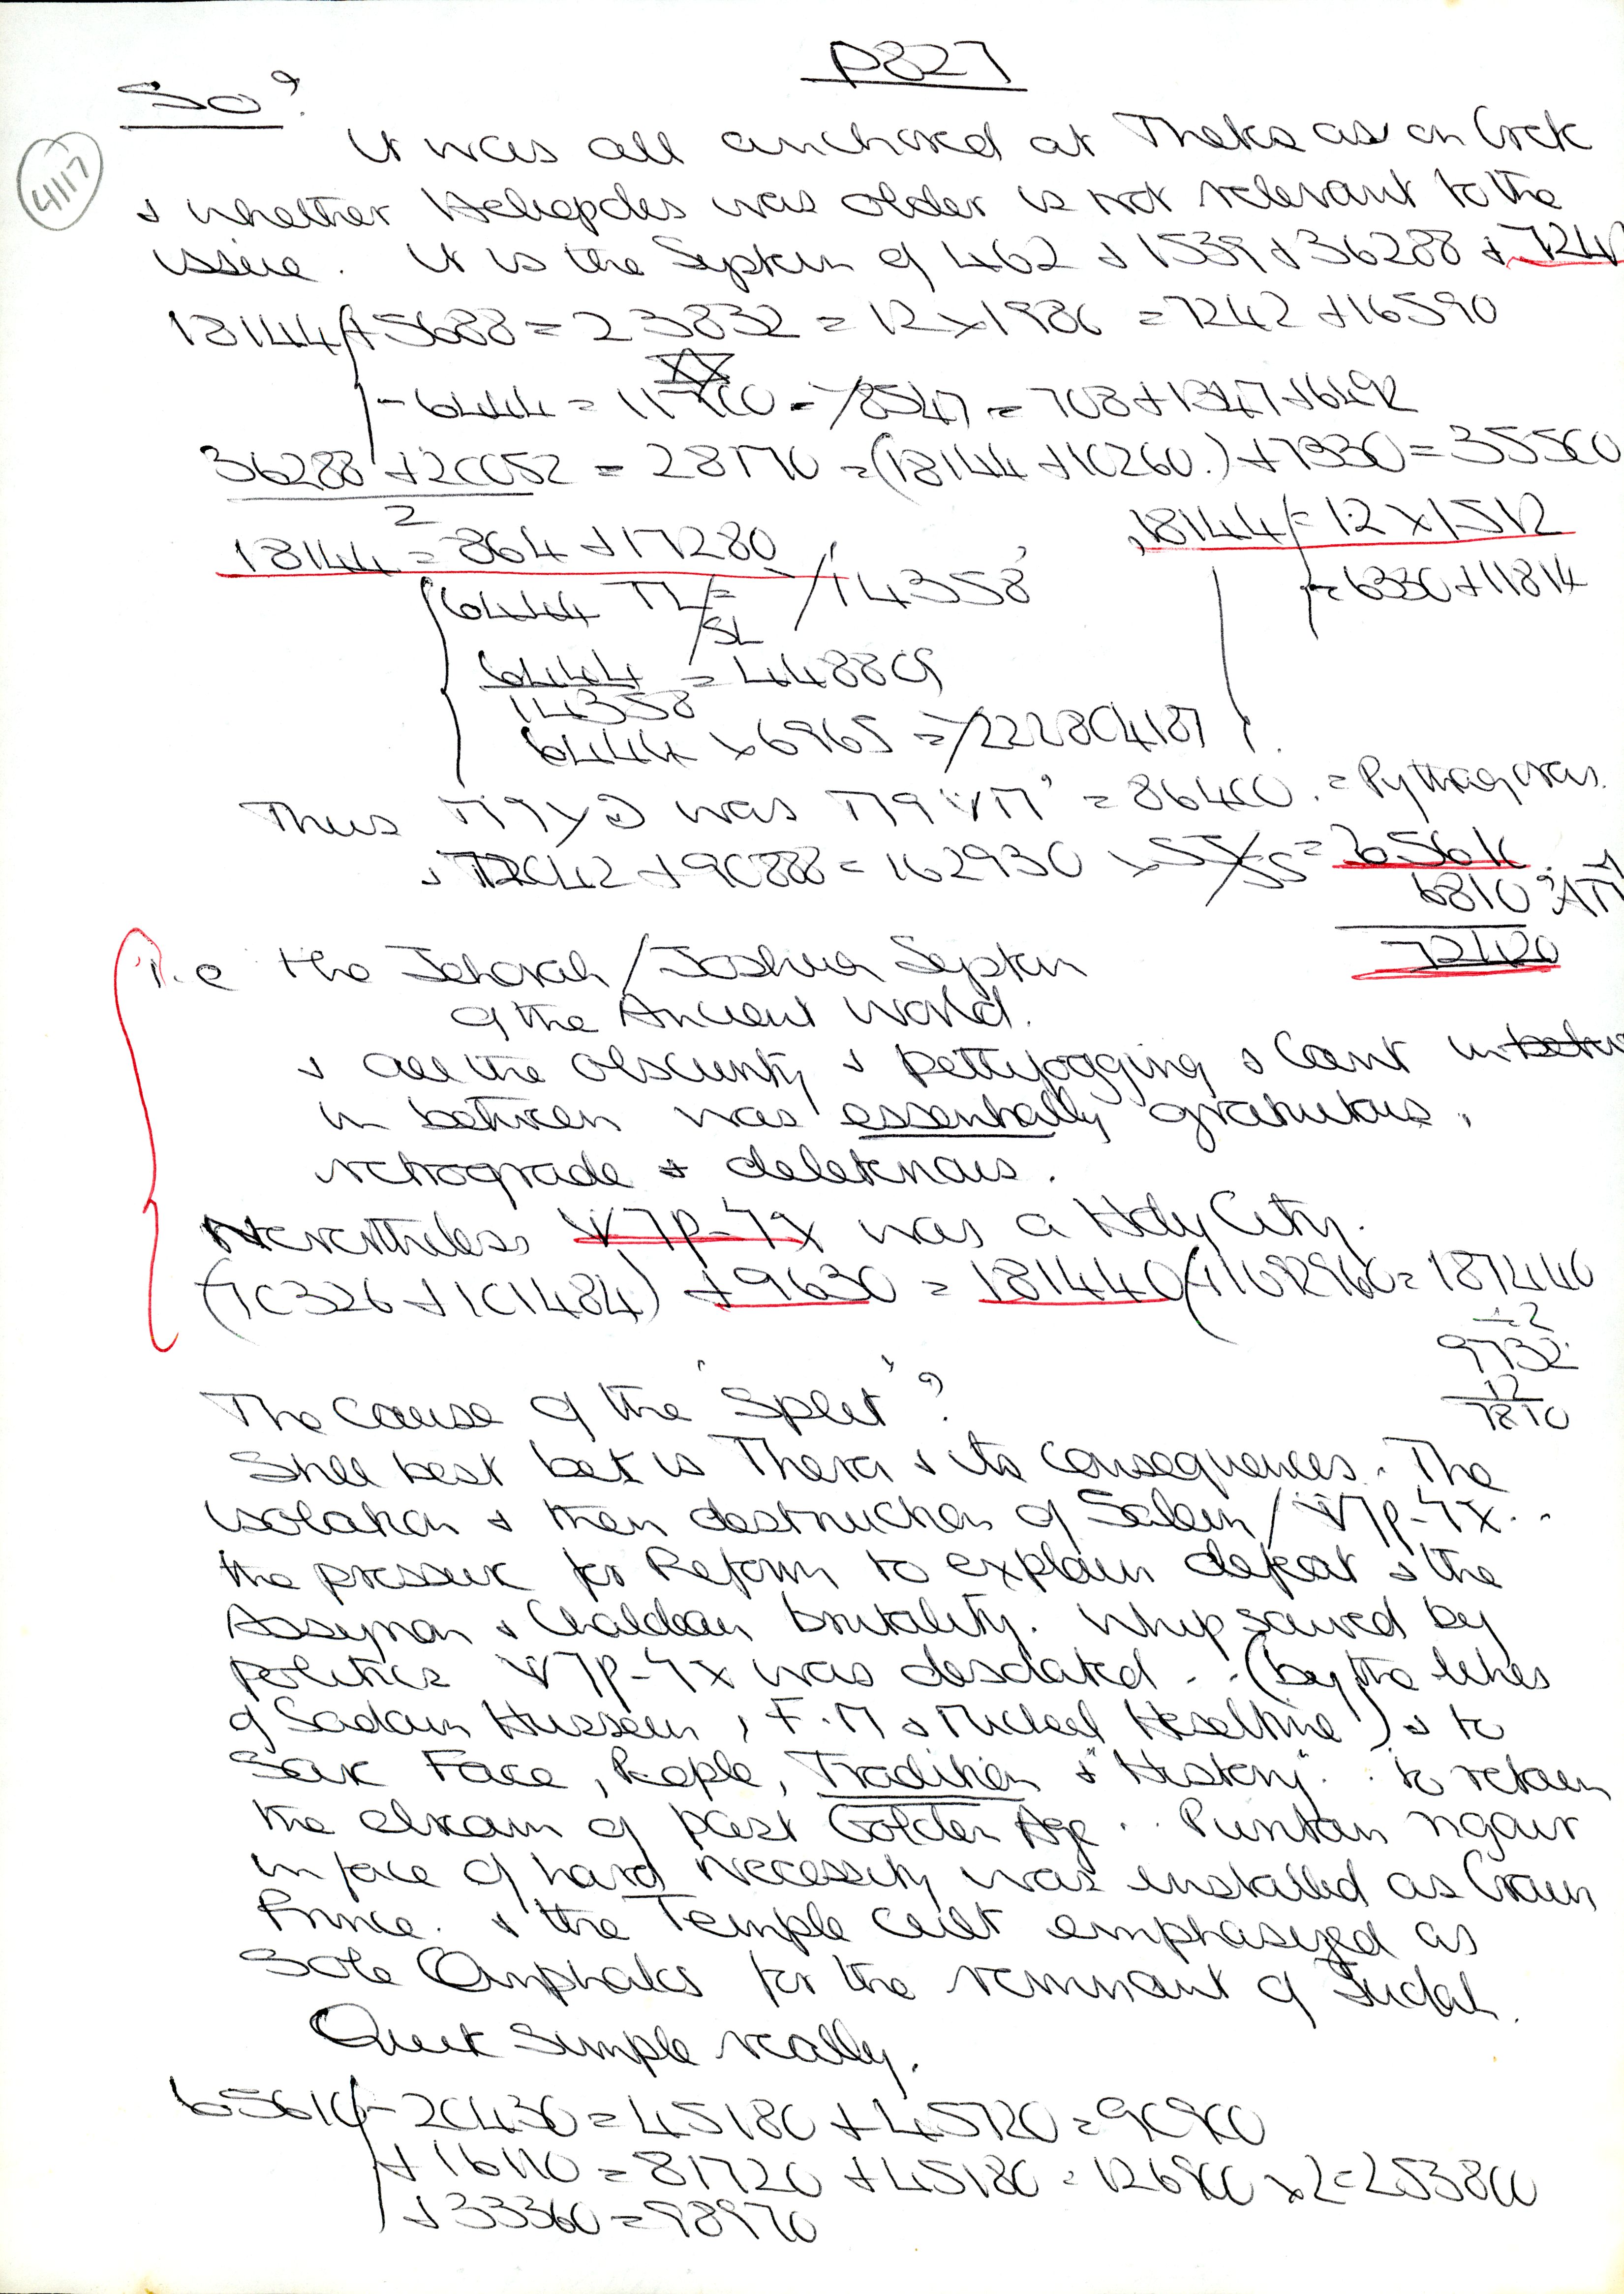 P827
So?
4117
It was all anchored at Theka as on Crete
& whether Heliopolis was older is not relevant to the
issue. It is the Septum of 462 + 1539 + 36288 +
18144 + 5688 = 23832 = 12 x 1986 = 7242 + 16590
- 6444 = 11700 = 708 + 1347 + 6492
36288 + 20052 = 28170 = (18144 + 10260.) + 7930 = 35500
2
18144 = 864 + 17280
18144 = 12 x 1512
6444 14358'
= 6330 + 11814
SL
6444 = 44880
14358
6444 x 6965 = /222804187
Thus was = 86400. = Pythagoras.
+ 72042 + 90888 = 162930
6810
72420
i.e the Jehovah/Joshua Septum
of the Ancient World.
& all the obscurity & pettyfogging & Cant
in between was essentially gratuitous,
retrograde & deleterious.
Nevertheless was a Holy City.
(70326 + 101484) + 9630 = 181440
÷2
9732
12
7810
The cause of the 'Split'?
Still best bet is Thera & its consequences. The
isolation & then destruction of Salem/
the pressure for Reform to explain defeat & the
Assyrian & Chaldean brutality. Whipsawed by
politics was desolated .. (by the likes
of Sadam Hussein, F.M & Michael Heseltine!) & to
Save Face, People, Tradition & "History" .. to retain
the dream of past Golden Age .. Puritan rigour
in face of hard necessity was installed as Crown
Prince. & the Temple cult emphasized as
Sole Omphalos for the remnant of Judah.
Quite Simple really.
65610 - 20430 = 45180 + 45720 = 90900
+ 16110 = 81720 + 45180 = 126900 x 2 = 253800
+ 33360 = 98970